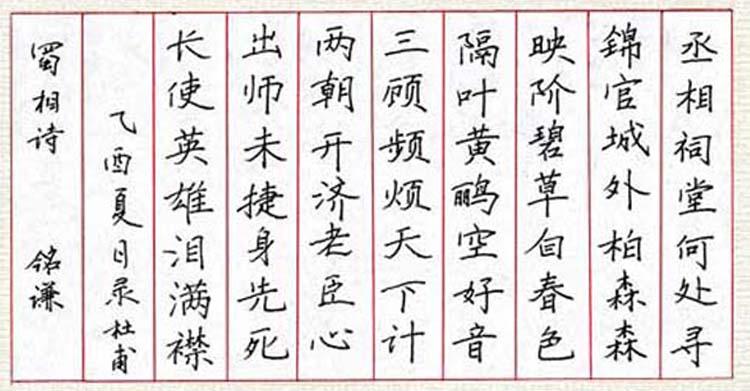 丞相祠堂何处寻
錦官城外柏森森
映阶碧草自春色
隔叶黄鹂空好音
三顾频烦天下计
两朝开济老臣心
出师未捷身先死
长使英雄泪满襟
乙酉夏日录杜甫
蜀相诗 铭谦